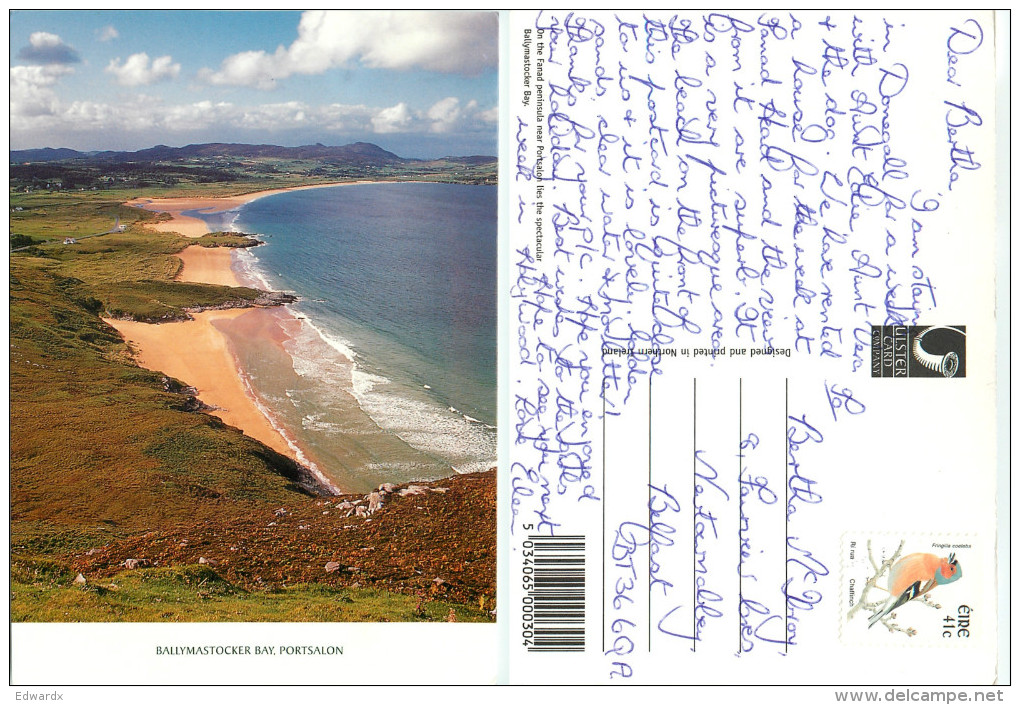 BALLYMASTOCKER BAY, PORTSALON
Dear Bertha
I am staying
in Donegal for a week
with Aunt Edie, Aunt Vera
& the dog. We have rented
a house for the week at
Fanad Head and the views
from it are superb. It
is a very picturesque area.
The beach on the front of
this postcard is quite close
to us & it is lovely. Golden
sands, clear water & no litter!
Thanks for your p/c. Hope you enjoyed
your holiday. Best wishes to the girls
Hope to see you next
week in Holywood. Love Eileen.
On the Fanad peninsula near Portsalon lies the spectacular
Ballymastocker Bay.
ULSTER
CARD
COMPANY
Designed and printed in Northern Ireland
Bertha McIlroy,
Newtownbreda,
Belfast
BT36 6QA
5 034065 000304
Fringilla coelebs
Rí rua
Chaffinch
éIRe
41c
Edwardx
www.delcampe.net